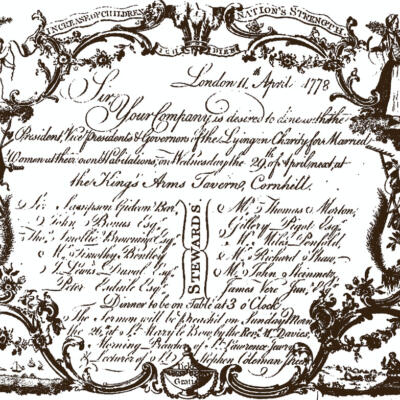 INCREASE OF CHILDREN A NATION'S STRENGTH
London 11.th April 1778
Sir
Your Company is desired to dine with the
President Vice Presidents & Governors of the Lying in Charity for Married
Women at their own Habitations, on Wednesday the 29th of April next, at
the King's Arms Tavern, Cornhill.
STEWARDS
Sr. Sampson Gideon Bart.
John Bonus Esq.
Thos. Esq.
Mr. Timothy Bentley
Lewis Duval Esq.
Peter Esdaile Esq.
Mr. Thomas Morton,
Gillery Pigot Esq.
Mr. Miles Penfold,
Mr. Richard Shaw,
Mr. John
James Vere Jun.
Dinner to be on Table at 3 o'Clock
The Sermon will be preached on Sunday Morn.
the 26, at St. Mary le Bow, by the Revd. Mr. Davies,
Morning Preacher of St. Lawrence Jewry
& Lecturer of St. Stephen Coleman Street
Gratis